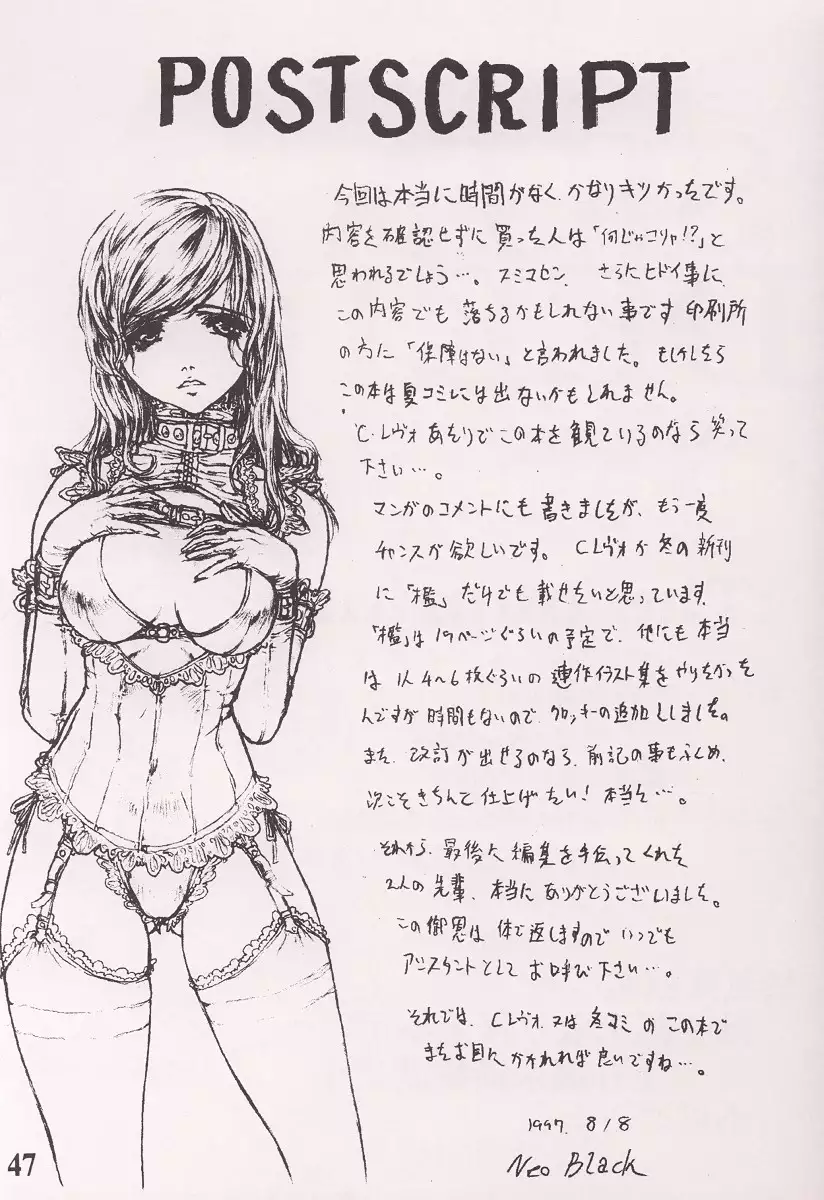 POSTSCRIPT
今回は本当に時間がなく、かなりキツかったです。
内容を確認せずに買った人は「何じゃコリャ!?」と
思われるでしょう…。スミマセン。さらにヒドイ事に、
この内容でも落ちるかもしれない事です。印刷所
の方に「保障はない」と言われました。もしかしたら
この本は夏コミには出ないかもしれません。
C・レヴォあたりでこの本を観ているのなら笑って
下さい…。
マンガのコメントにも書きましたが、もう一度
チャンスが欲しいです。Cレヴォか冬の新刊
に「檻」だけでも載せたいと思っています。
「檻」は19ページぐらいの予定で、他にも本当
は1人4〜6枚ぐらいの連作イラスト集をやりたかった
んですが時間もないので、クロッキーの追加にしました。
また、改訂が出せるのなら、前記の事もふくめ、
次こそきちんと仕上げたい!本当に…。
それから、最後に編集を手伝ってくれた
2人の先輩、本当にありがとうございました。
この御恩は体で返しますのでいつでも
アシスタントとしてお呼び下さい…。
それでは、Cレヴォ、又は冬コミのこの本で
またお目にかかれれば良いですね…。
1997. 8/8
Neo Black
47